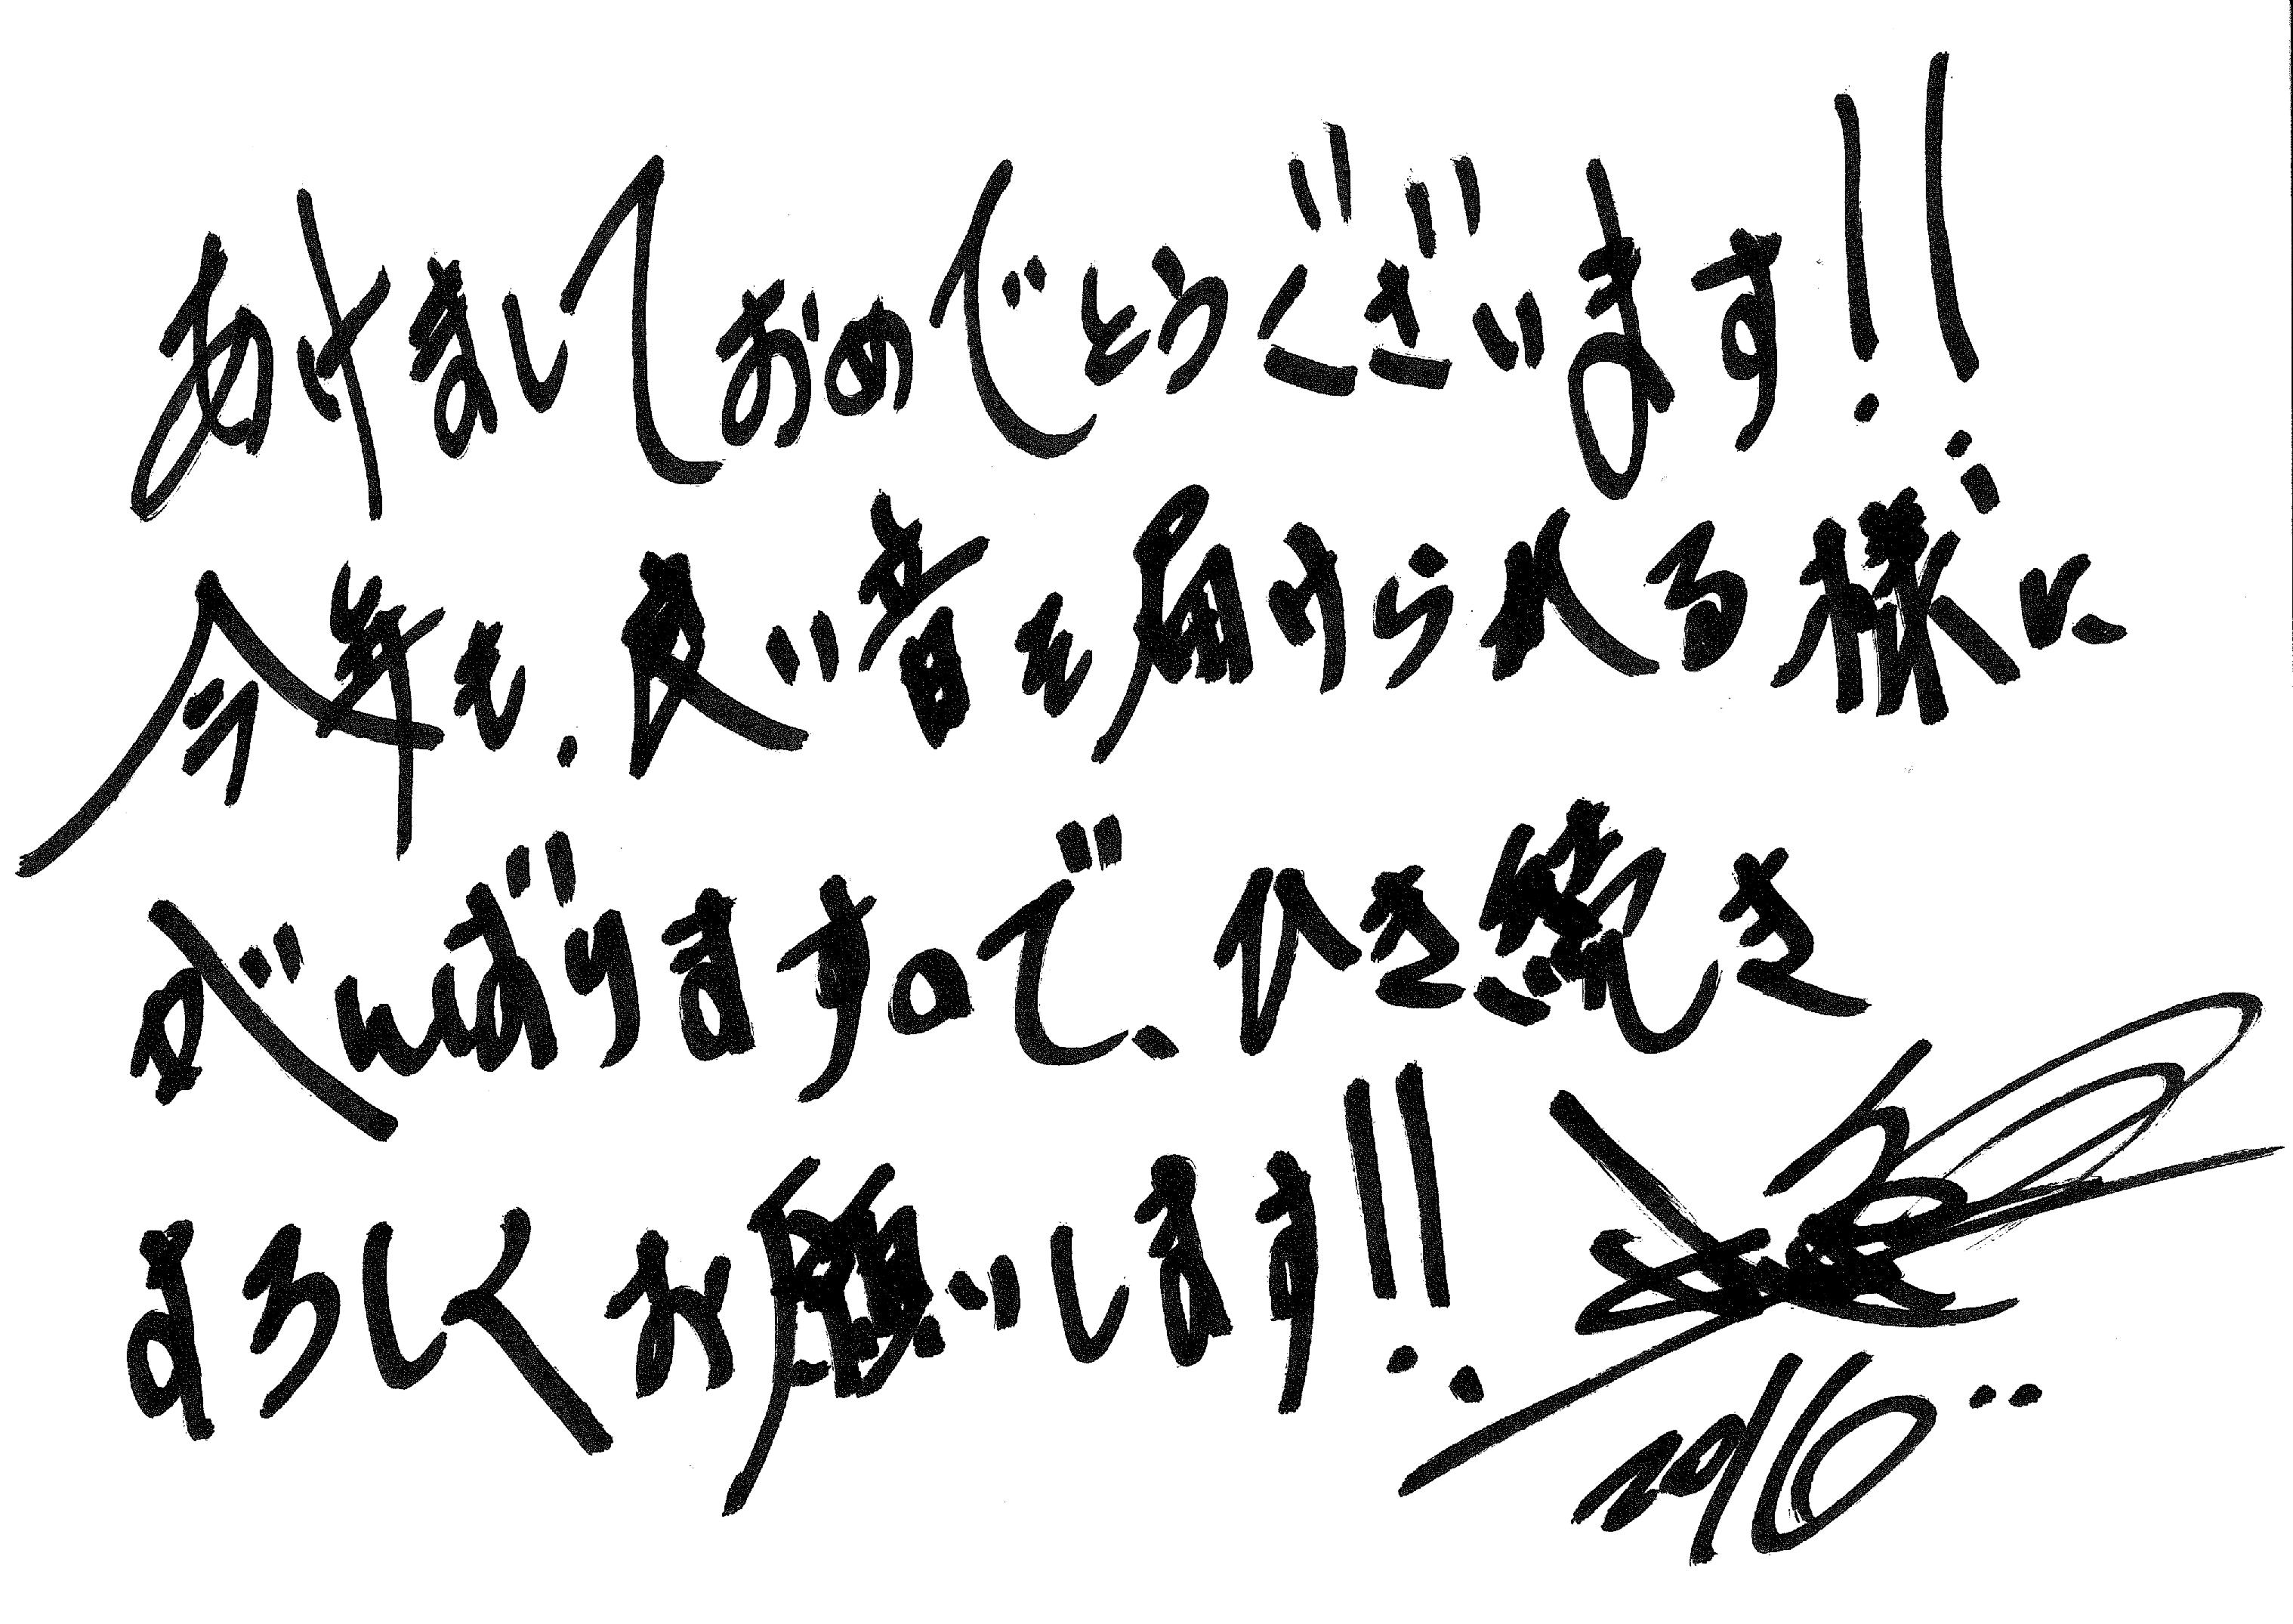 あけましておめでとうございます!!
今年も、良い音を届けられる様に
がんばりますので、ひき続き
よろしくお願いします!!
2016